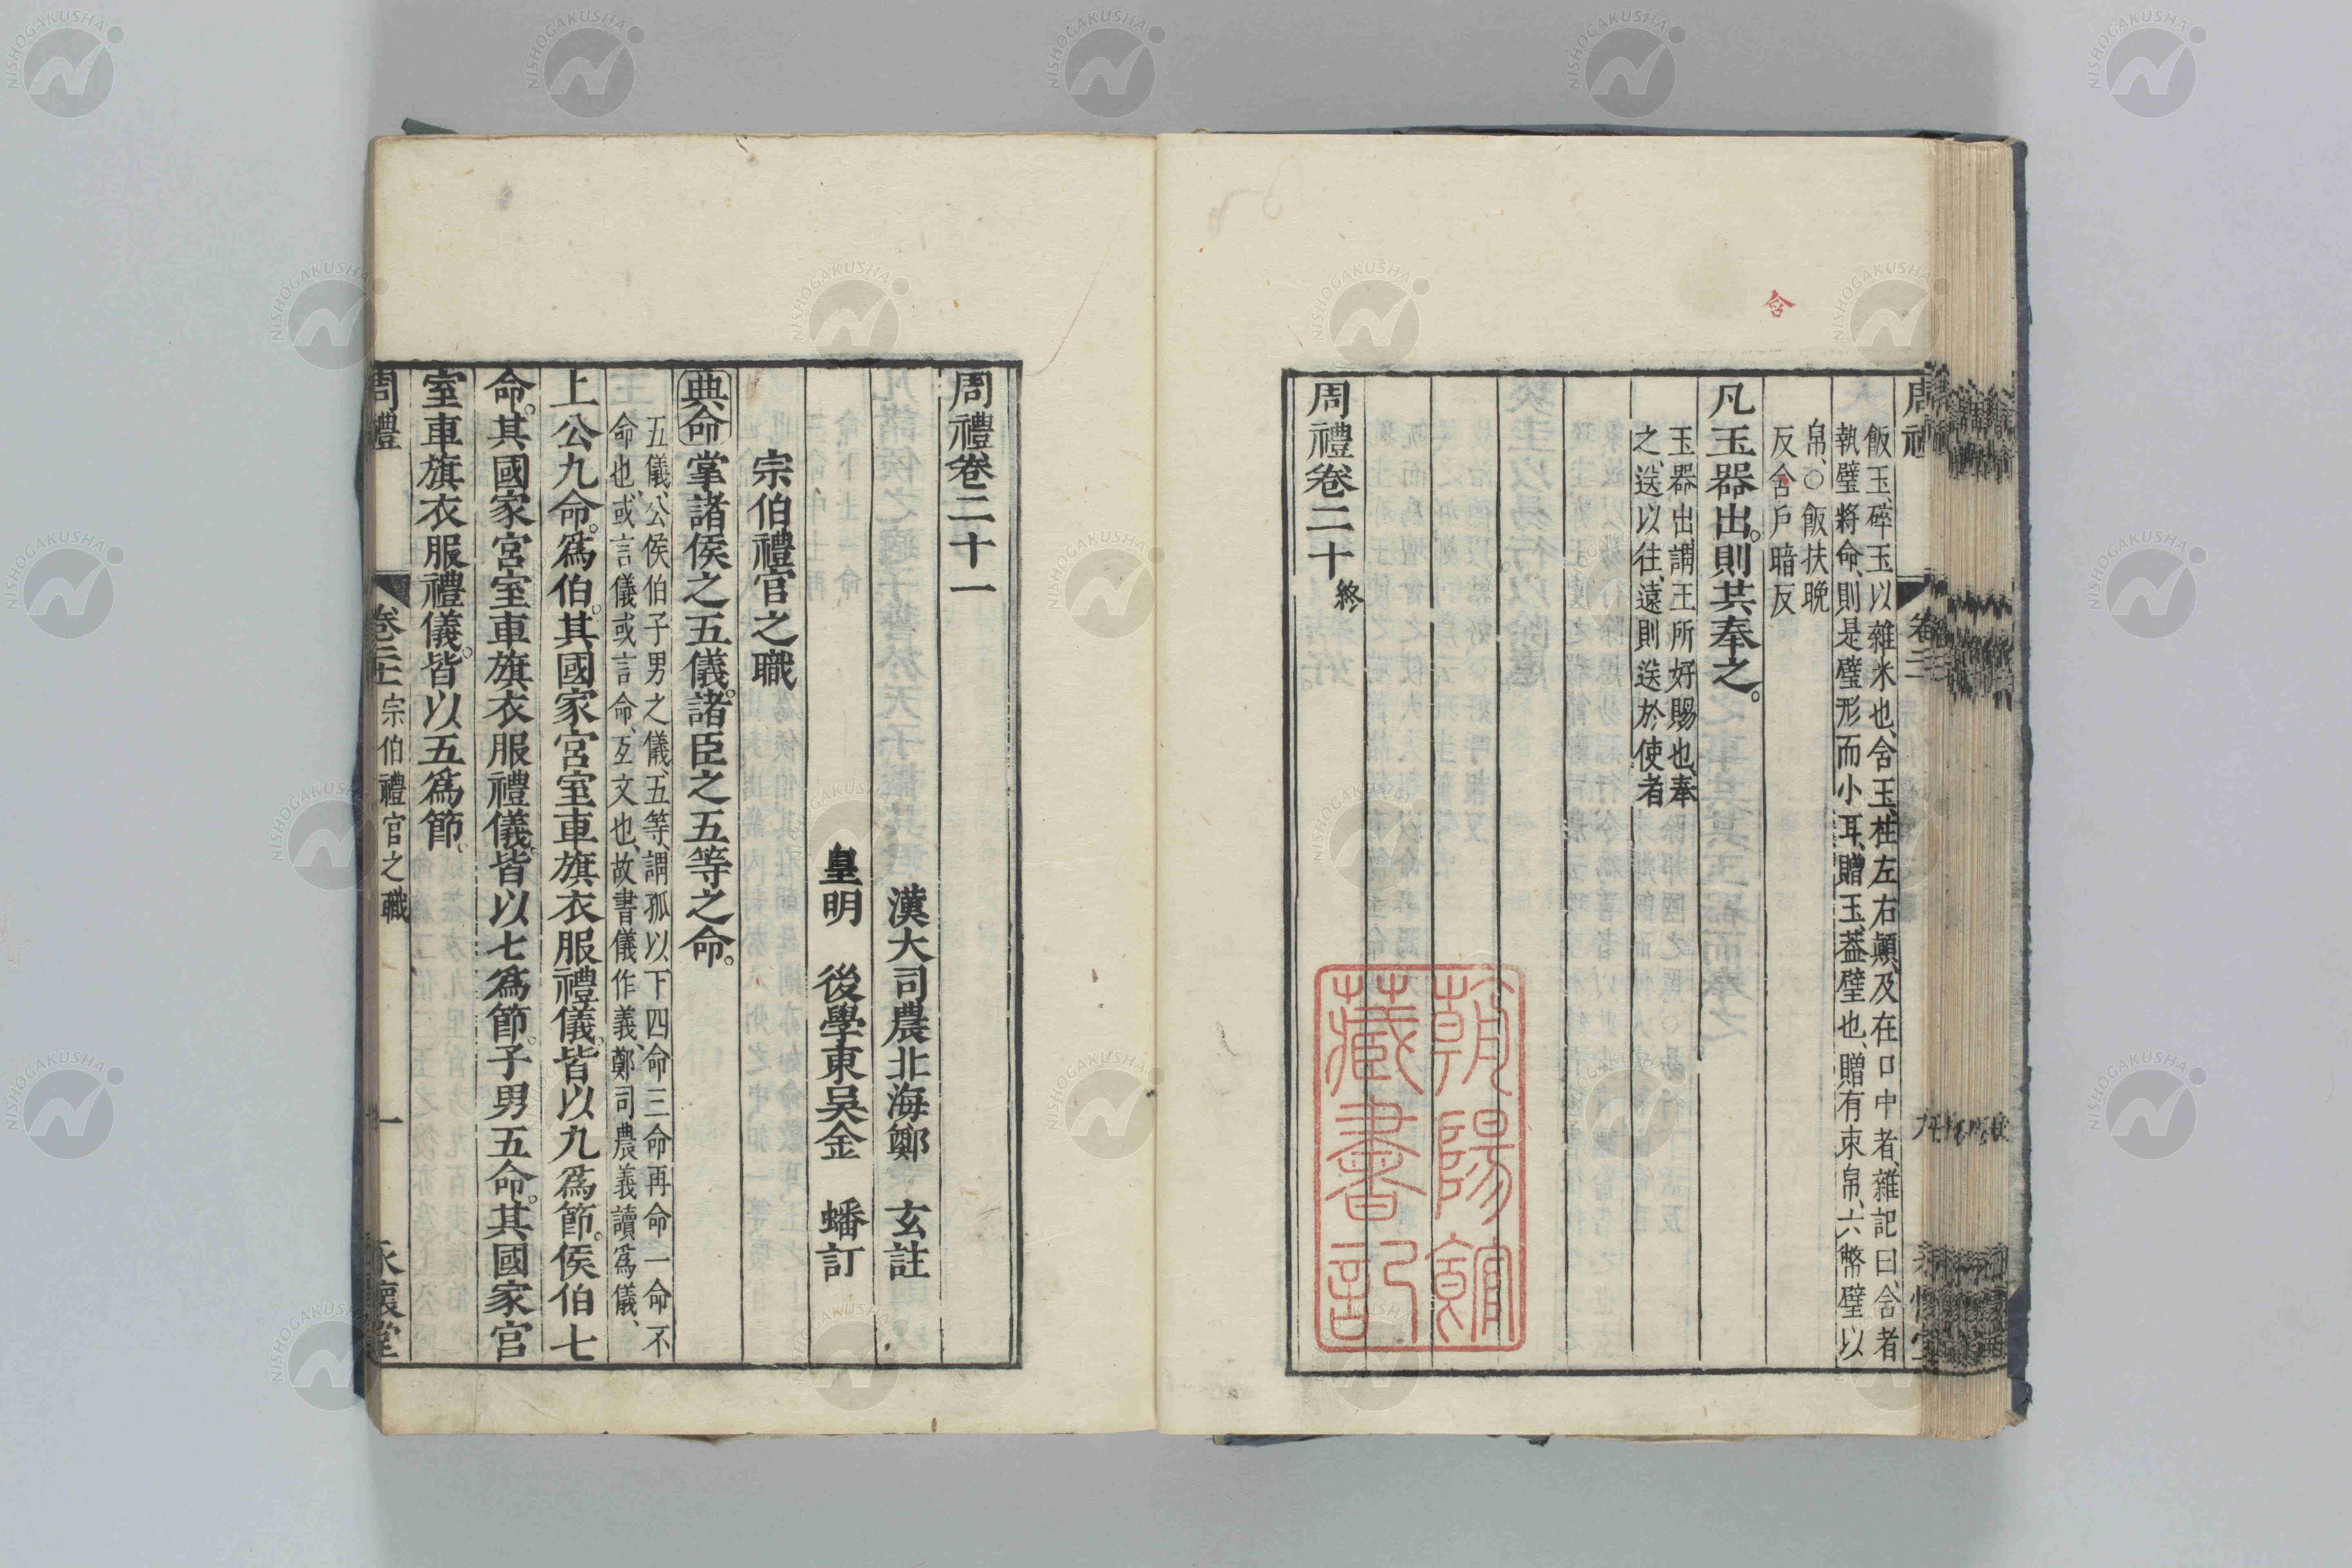 飯玉、碎玉以雜米也、含玉、柱左右顛、及在口中者、雜記曰、含者
執璧將命、則是璧形而小耳、贈玉、葢璧也、贈有束帛、六幣璧以
帛、○飯扶晚
反含戶暗反
凡玉器出。則共奉之。
玉器出謂王所好賜也、奉
之、送以往、遠則送於使者
周禮卷二十終
含
朝陽館
藏書記
周禮卷二十一
漢大司農北海鄭 玄註
皇明 後學東吳金 蟠訂
宗伯禮官之職
典命掌諸侯之五儀。諸臣之五等之命。
五儀、公侯伯子男之儀、五等、謂孤以下四命三命再命一命不
命也、或言儀或言命、互文也、故書儀作義、鄭司農義讀爲儀、
上公九命。爲伯。其國家宮室車旗衣服禮儀。皆以九爲節。侯伯七
命。其國家宮室車旗衣服禮儀。皆以七爲節。子男五命。其國家宮
室車旗衣服禮儀。皆以五爲節。
周禮 卷二十一 宗伯禮官之職 一 永懷堂
NISHOGAKUSHA